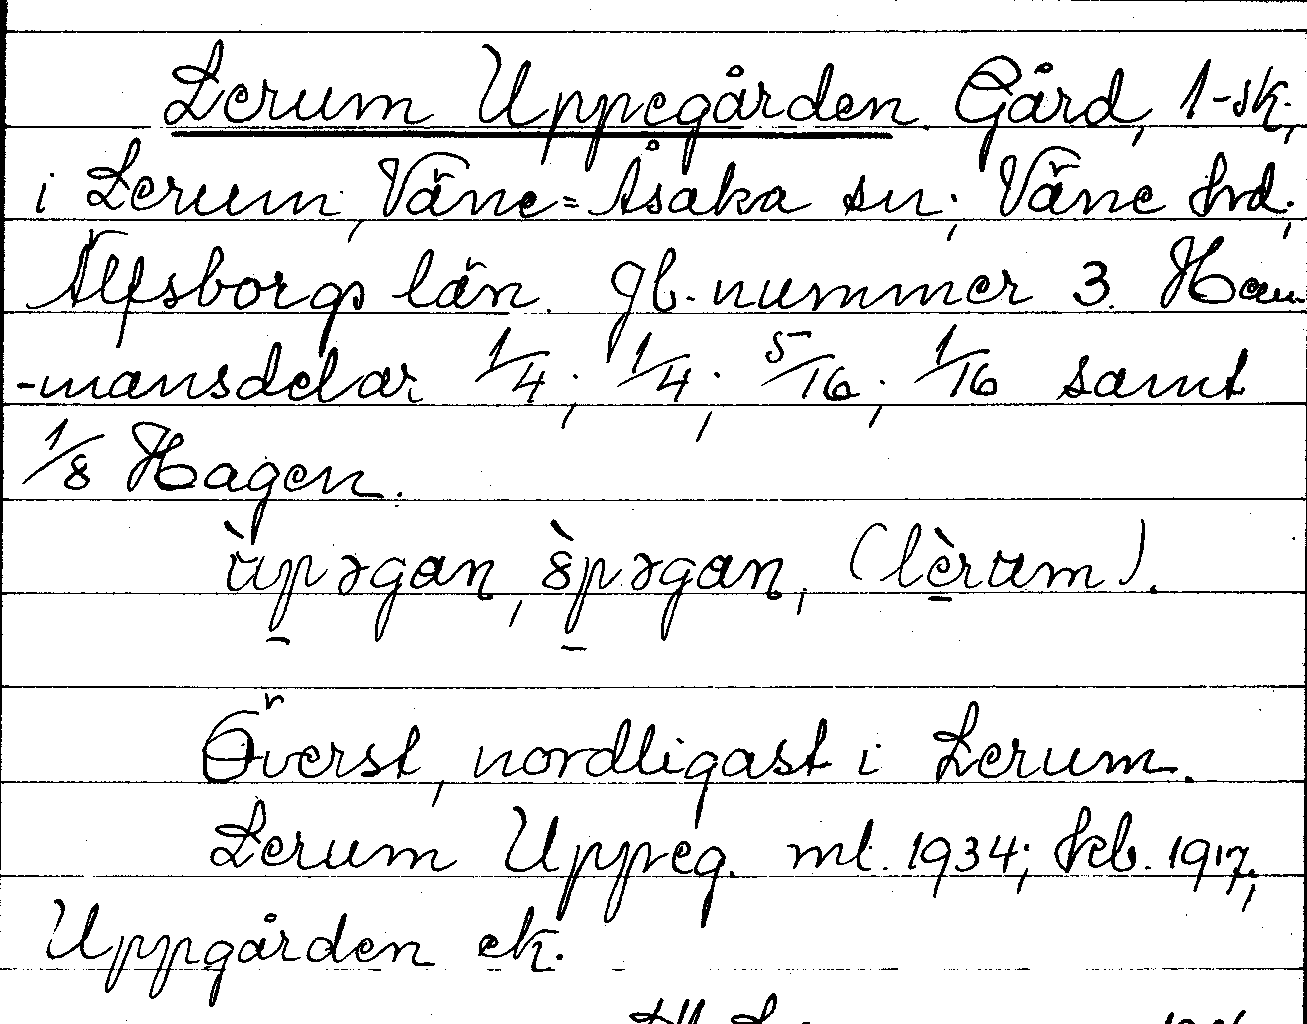 Lerum Uppegården. Gård, 1-sk,
i Lerum, Väne=Åsaka sn; Väne hd;
Älfsborgs län. Jb. nummer 3. Hem
-mansdelar 1/4; 1/4; 5/16; 1/16 samt
1/8 Hagen.
ùpəgan, 8̀pəgan, (lèrum).
Överst, nordligast i Lerum.
Lerum Uppeg. ml. 1934; feb. 1917;
Uppgården ek.